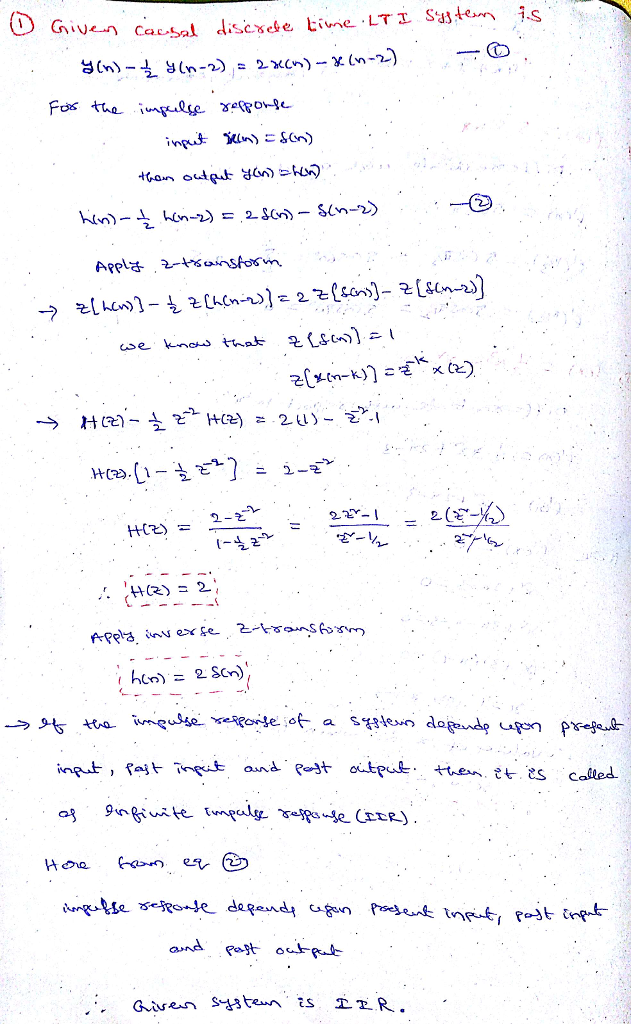 ① Given causal discrete time LTI System is
y(n) - 1/2 y(n-2) = 2x(n) - x(n-2) —①
For the impulse response
input x(n) = δ(n)
then output y(n) = h(n)
h(n) - 1/2 h(n-2) = 2δ(n) - δ(n-2) —②
Apply z-transform
→ z[h(n)] - 1/2 z[h(n-2)] = 2 z[δ(n)] - z[δ(n-2)]
we know that z[δ(n)] = 1
z[x(n-k)] = z^-k x(z)
→ H(z) - 1/2 z^-2 H(z) = 2(1) - z^-2.1
H(z).[1 - 1/2 z^-2] = 2 - z^-2
H(z) = (2 - z^-2)/(1 - 1/2 z^-2) = (2z² - 1)/(z² - 1/2) = 2(z² - 1/2)/(z² - 1/2)
∴ H(z) = 2
Apply inverse z-transform
h(n) = 2 δ(n)
→ If the impulse response of a system depends upon present
input, past input and past output. then it is called
as Infinite impulse response (IIR).
Here from eq ②
impulse response depends upon present input, past input
and past output
∴ Given system is IIR.